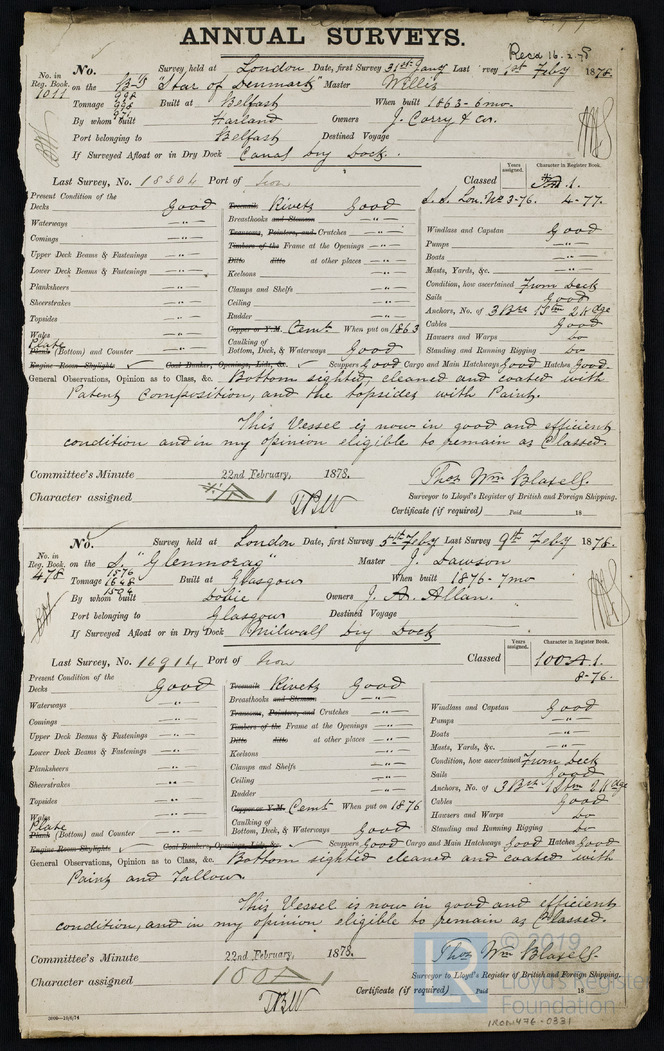 ANNUAL SURVEYS.
Recd 16.2.78
No. in Reg. Book. 1011
No. Survey held at London Date, first Survey 31st Jany Last Survey 1st Feby 1878.
on the "Star of Denmark" Master Willis
Tonnage 998 Built at Belfast When built 1863-6mo.
By whom built Harland Owners J. Corry & Co.
Port belonging to Belfast Destined Voyage
If Surveyed Afloat or in Dry Dock Canal Dry Dock.
Years assigned. Character in Register Book.
Last Survey, No. 18304 Port of Lon Classed
S.S. Lon. No 3-76. 4-77.
Present Condition of the
Decks Good
Waterways —"—
Comings —"—
Upper Deck Beams & Fastenings —"—
Lower Deck Beams & Fastenings —"—
Planksheers —"—
Sheerstrakes —"—
Topsides —"—
Wales —"—
Plate
Plank (Bottom) and Counter —"—
Treenails Rivets Good
Breasthooks and Stemson —"—
Transoms, Pointers, and Crutches —"—
Timbers of the Frame at the Openings —"—
Ditto ditto at other places —"—
Keelsons —"—
Clamps and Shelfs —"—
Ceiling —"—
Rudder —"—
Copper or Y.M. Cemt. When put on 1863
Caulking of Bottom, Deck, & Waterways Good
Windlass and Capstan Good
Pumps —"—
Boats —"—
Masts, Yards, &c. —"—
Condition, how ascertained From Deck
Sails Good
Anchors, No. of 3 Brs 1 Stm 2 Kdge
Cables Good
Hawsers and Warps Do
Standing and Running Rigging Do
Engine Room Skylights Coal Bunker, Openings, Lids, &c. Scuppers Good Cargo and Main Hatchways Good Hatches Good.
General Observations, Opinion as to Class, &c. Bottom sighted, cleaned and coated with
Patent Composition, and the topsides with Paint.
This Vessel is now in good and efficient
condition and in my opinion eligible to remain as Classed.
Committee's Minute 22nd February, 1878. Thos Wm Blaxell.
Character assigned Surveyor to Lloyd's Register of British and Foreign Shipping.
Certificate (if required) Paid 18
No. in Reg. Book. 478
No. Survey held at London Date, first Survey 5th Feby Last Survey 9th Feby 1878.
on the S. "Glenmorag" Master J. Dawson
Tonnage 1576 1648 1504 Built at Glasgow When built 1876-7mo
By whom built Dobie Owners J. A. Allan.
Port belonging to Glasgow Destined Voyage
If Surveyed Afloat or in Dry Dock Milwall Dry Dock
Years assigned. Character in Register Book.
Last Survey, No. 16914 Port of Lon Classed 100A.1.
8-76.
Present Condition of the
Decks Good
Waterways —"—
Comings —"—
Upper Deck Beams & Fastenings —"—
Lower Deck Beams & Fastenings —"—
Planksheers —"—
Sheerstrakes —"—
Topsides —"—
Wales —"—
Plate
Plank (Bottom) and Counter —"—
Treenails Rivets Good
Breasthooks and Stemson —"—
Transoms, Pointers, and Crutches —"—
Timbers of the Frame at the Openings —"—
Ditto ditto at other places —"—
Keelsons —"—
Clamps and Shelfs —"—
Ceiling —"—
Rudder —"—
Copper or Y.M. Cemt When put on 1876
Caulking of Bottom, Deck, & Waterways Good
Windlass and Capstan Good
Pumps —"—
Boats —"—
Masts, Yards, &c. —"—
Condition, how ascertained From Deck
Sails Good
Anchors, No. of 3 Brs 1 Stm 2 Kdge
Cables Good
Hawsers and Warps Do
Standing and Running Rigging Do
Engine Room Skylights Coal Bunkers, Openings, Lids, &c. Scuppers Good Cargo and Main Hatchways Good Hatches Good
General Observations, Opinion as to Class, &c. Bottom sighted cleaned and coated with
Paint and Tallow.
This Vessel is now in good and efficient
condition, and in my opinion eligible to remain as Classed.
Committee's Minute 22nd February, 1878. Thos Wm Blaxell.
Character assigned 100A1 Surveyor to Lloyd's Register of British and Foreign Shipping.
Certificate (if required) Paid 18
© 2019
Lloyd's Register
Foundation
LR
IRON476-0331